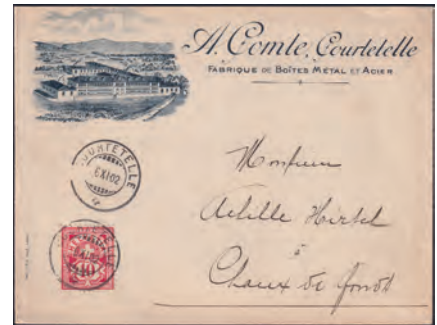 A. Comte, Courtetelle
FABRIQUE DE BOÎTES METAL ET ACIER
COURTETELLE
6 XI 02
Monsieur
Achille Hirsch
à
Chaux de fonds
10